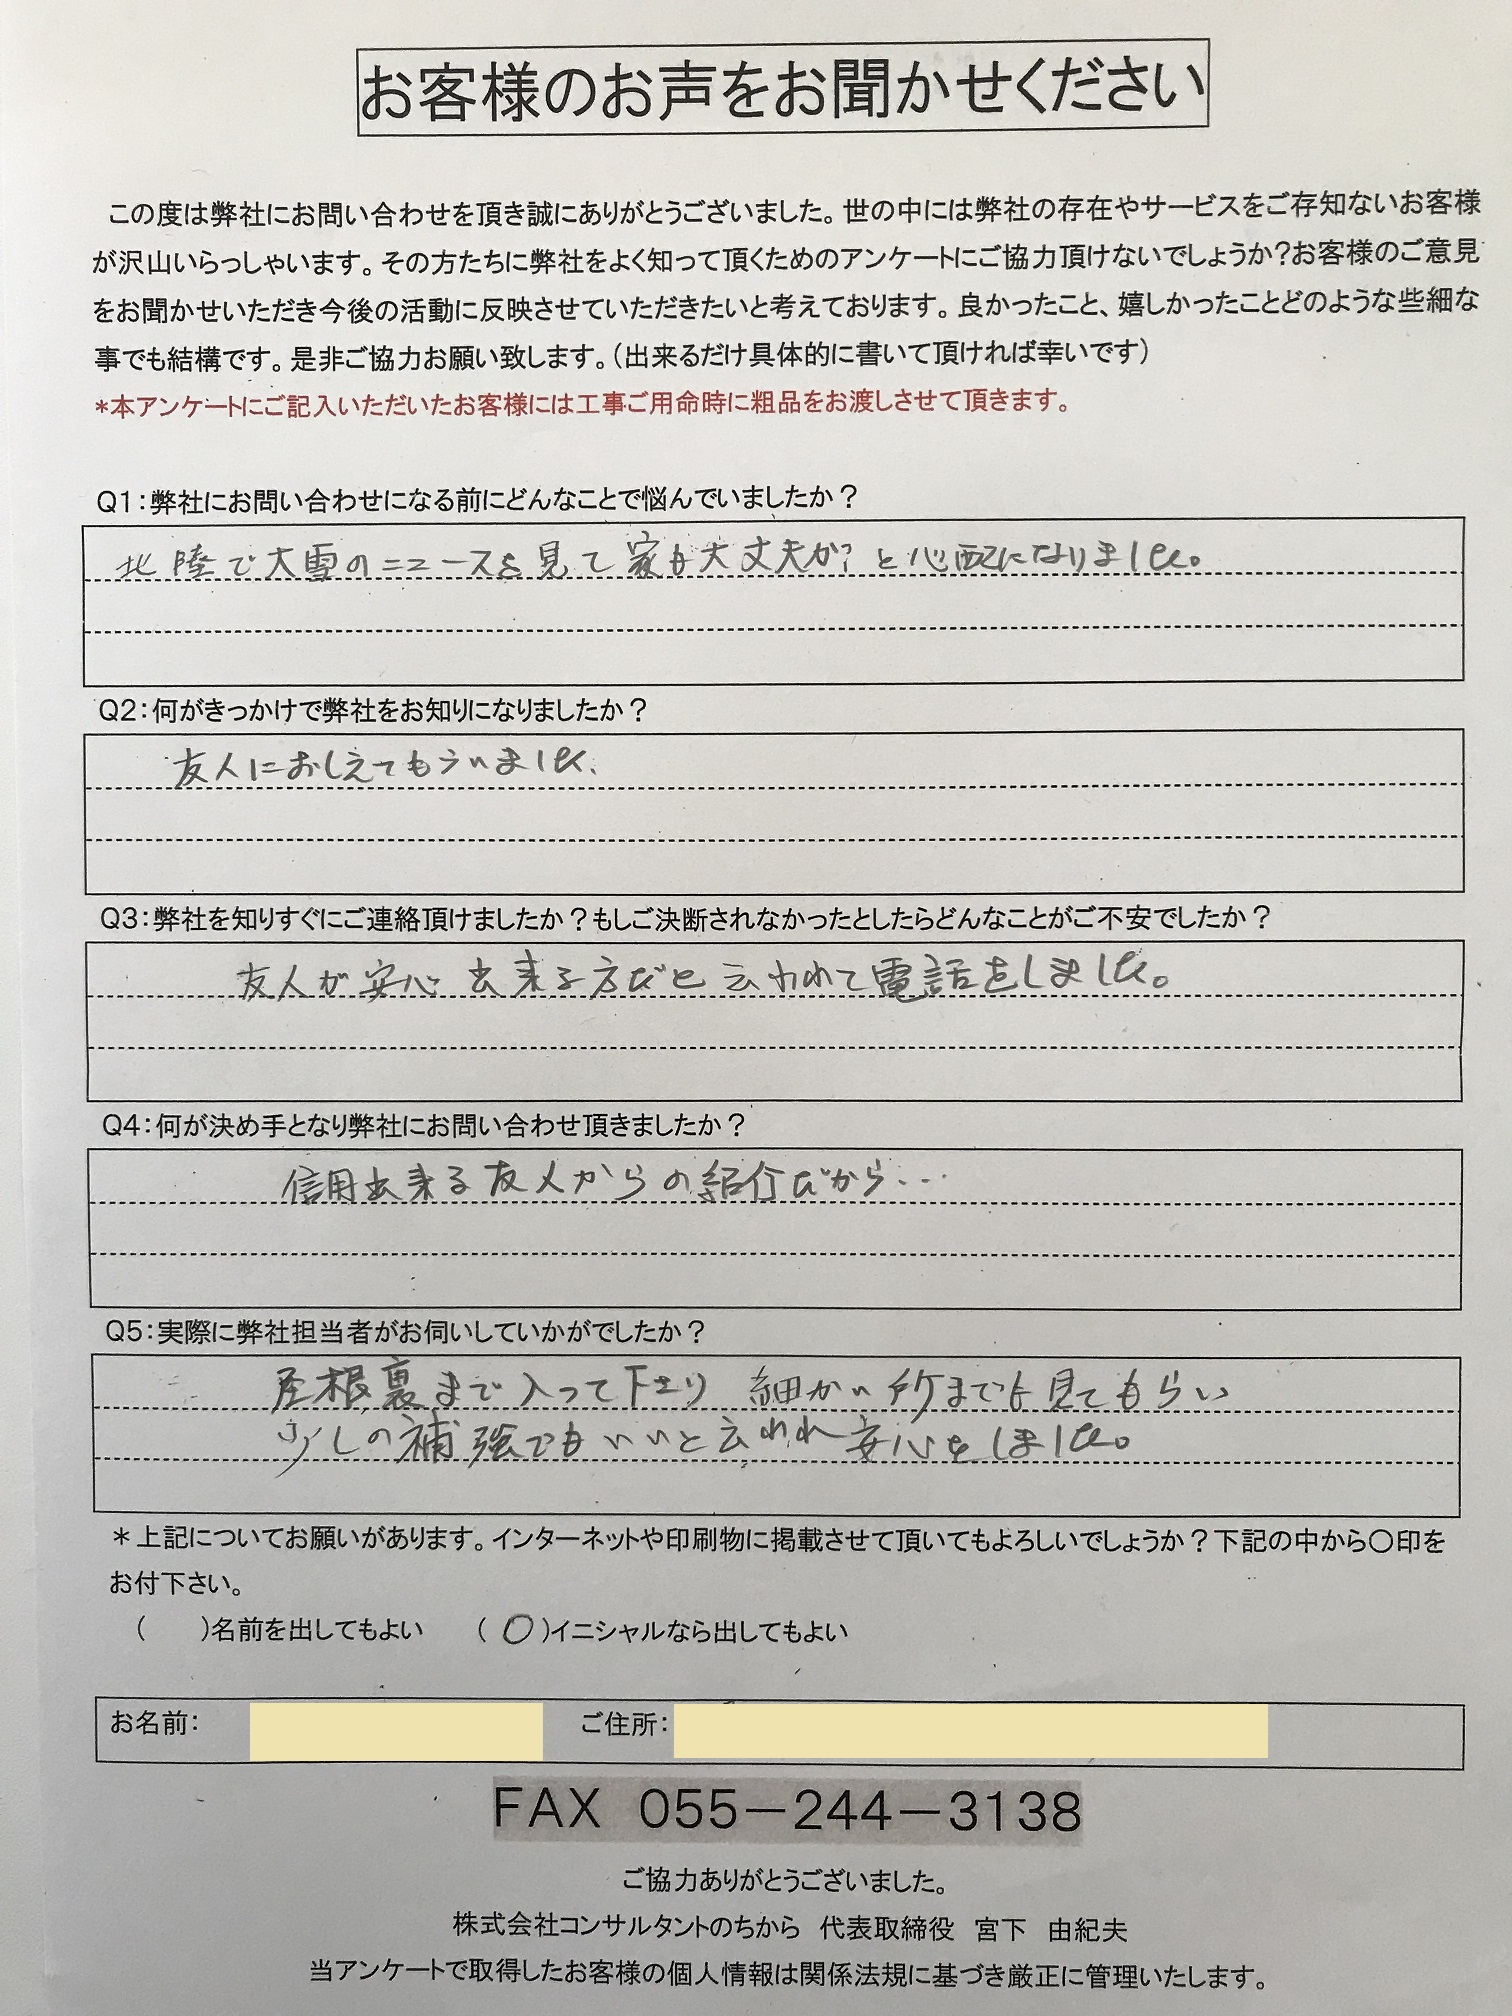 お客様のお声をお聞かせください
この度は弊社にお問い合わせを頂き誠にありがとうございました。世の中には弊社の存在やサービスをご存知ないお客様
が沢山いらっしゃいます。その方たちに弊社をよく知って頂くためのアンケートにご協力頂けないでしょうか?お客様のご意見
をお聞かせいただき今後の活動に反映させていただきたいと考えております。良かったこと、嬉しかったことどのような些細な
事でも結構です。是非ご協力お願い致します。(出来るだけ具体的に書いて頂ければ幸いです)
*本アンケートにご記入いただいたお客様には工事ご用命時に粗品をお渡しさせて頂きます。
Q1:弊社にお問い合わせになる前にどんなことで悩んでいましたか?
北陸で大雪のニュースを見て家も大丈夫か?と心配になりました。
Q2:何がきっかけで弊社をお知りになりましたか?
友人におしえてもらいました。
Q3:弊社を知りすぐにご連絡頂けましたか?もしご決断されなかったとしたらどんなことがご不安でしたか?
友人が安心出来る方だと云われて電話をしました。
Q4:何が決め手となり弊社にお問い合わせ頂きましたか?
信用出来る友人からの紹介だから...
Q5:実際に弊社担当者がお伺いしていかがでしたか?
屋根裏まで入って下さり 細かい所までも見てもらい
少しの補強でもいいと云われ安心をしました。
*上記についてお願いがあります。インターネットや印刷物に掲載させて頂いてもよろしいでしょうか?下記の中から〇印を
お付下さい。
(　　)名前を出してもよい　(〇)イニシャルなら出してもよい
お名前:　ご住所:
FAX 055-244-3138
ご協力ありがとうございました。
株式会社コンサルタントのちから 代表取締役 宮下 由紀夫
当アンケートで取得したお客様の個人情報は関係法規に基づき厳正に管理いたします。